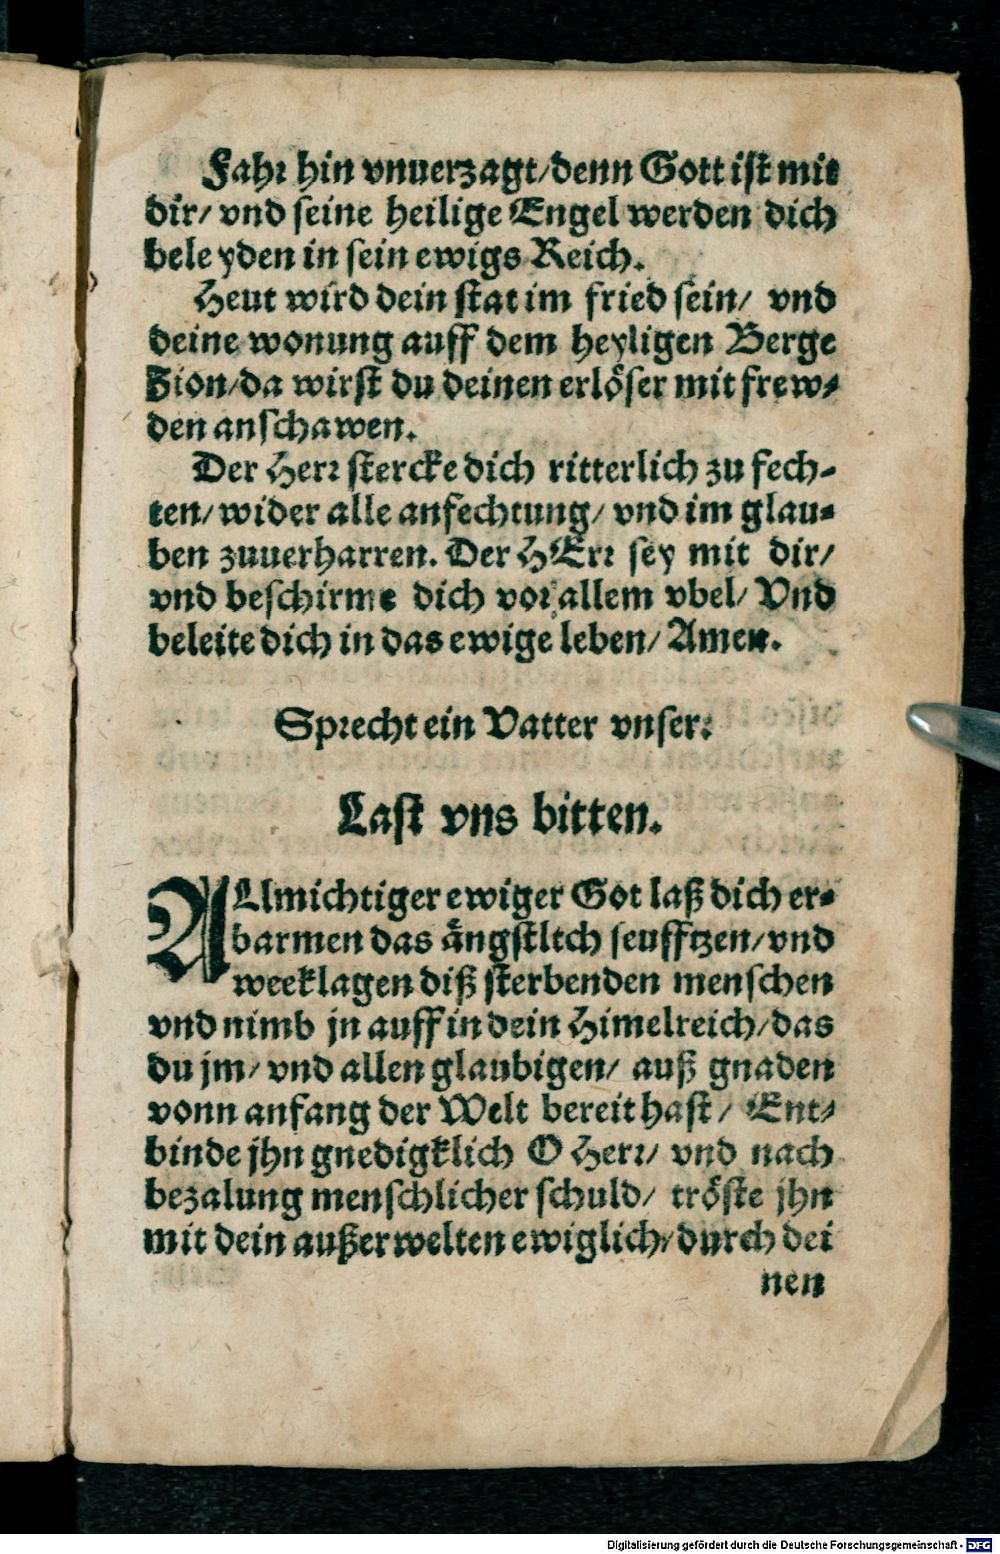 Fahr hin vnuerzagt/denn Gott ist mit
dir/ vnd seine heilige Engel werden dich
beleyden in sein ewigs Reich.
Heut wird dein stat im fried sein/ vnd
deine wonung auff dem heyligen Berge
Zion/da wirst du deinen erlöser mit frew-
den anschawen.
Der Herr stercke dich ritterlich zu fech-
ten/ wider alle anfechtung/ vnd im glau-
ben zuuerharren. Der HErr sey mit dir/
vnd beschirme dich vor allem vbel/ Vnd
beleite dich in das ewige leben/ Amen.
Sprecht ein Vatter vnser:
Last vns bitten.
ALlmichtiger ewiger Got laß dich er-
barmen das ängstltch seufftzen/vnd
weeklagen diß sterbenden menschen
vnd nimb jn auff in dein Himelreich/das
du jm/ vnd allen glaubigen/ auß gnaden
vonn anfang der Welt bereit hast/ Ent-
binde jhn gnedigklich O Herr/ vnd nach
bezalung menschlicher schuld/ tröste jhn
mit dein außerwelten ewiglich/durch dei
nen
Digitalisierung gefördert durch die Deutsche Forschungsgemeinschaft - DFG